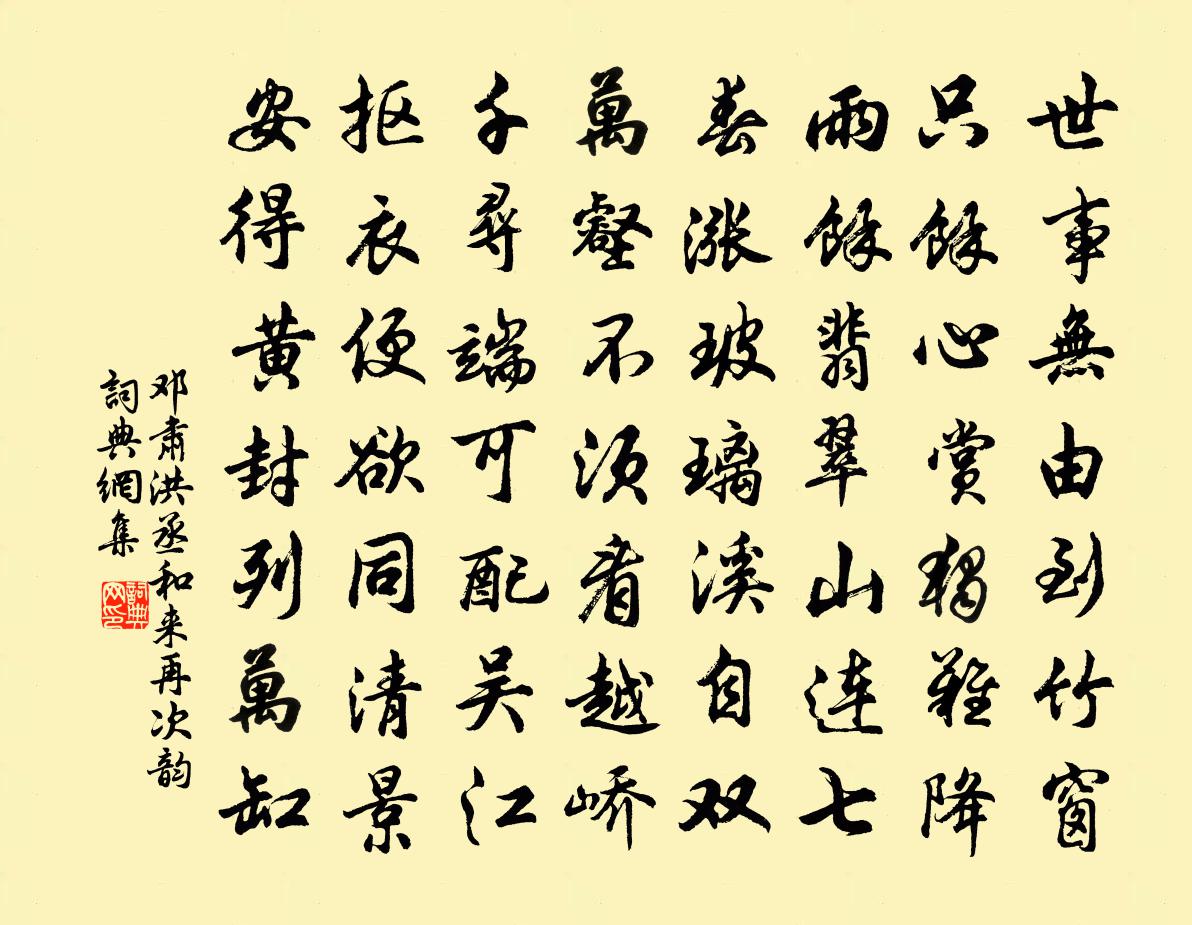 世事無由到竹窗
只餘心賞獨難降
雨餘翡翠山連七
春漲玻璃溪自双
萬壑不須看越嶠
千尋端可配吴江
抠衣便欲同清景
安得黄封列萬缸
邓肅洪丞和来再次韵
詞典網集
詞典
网印